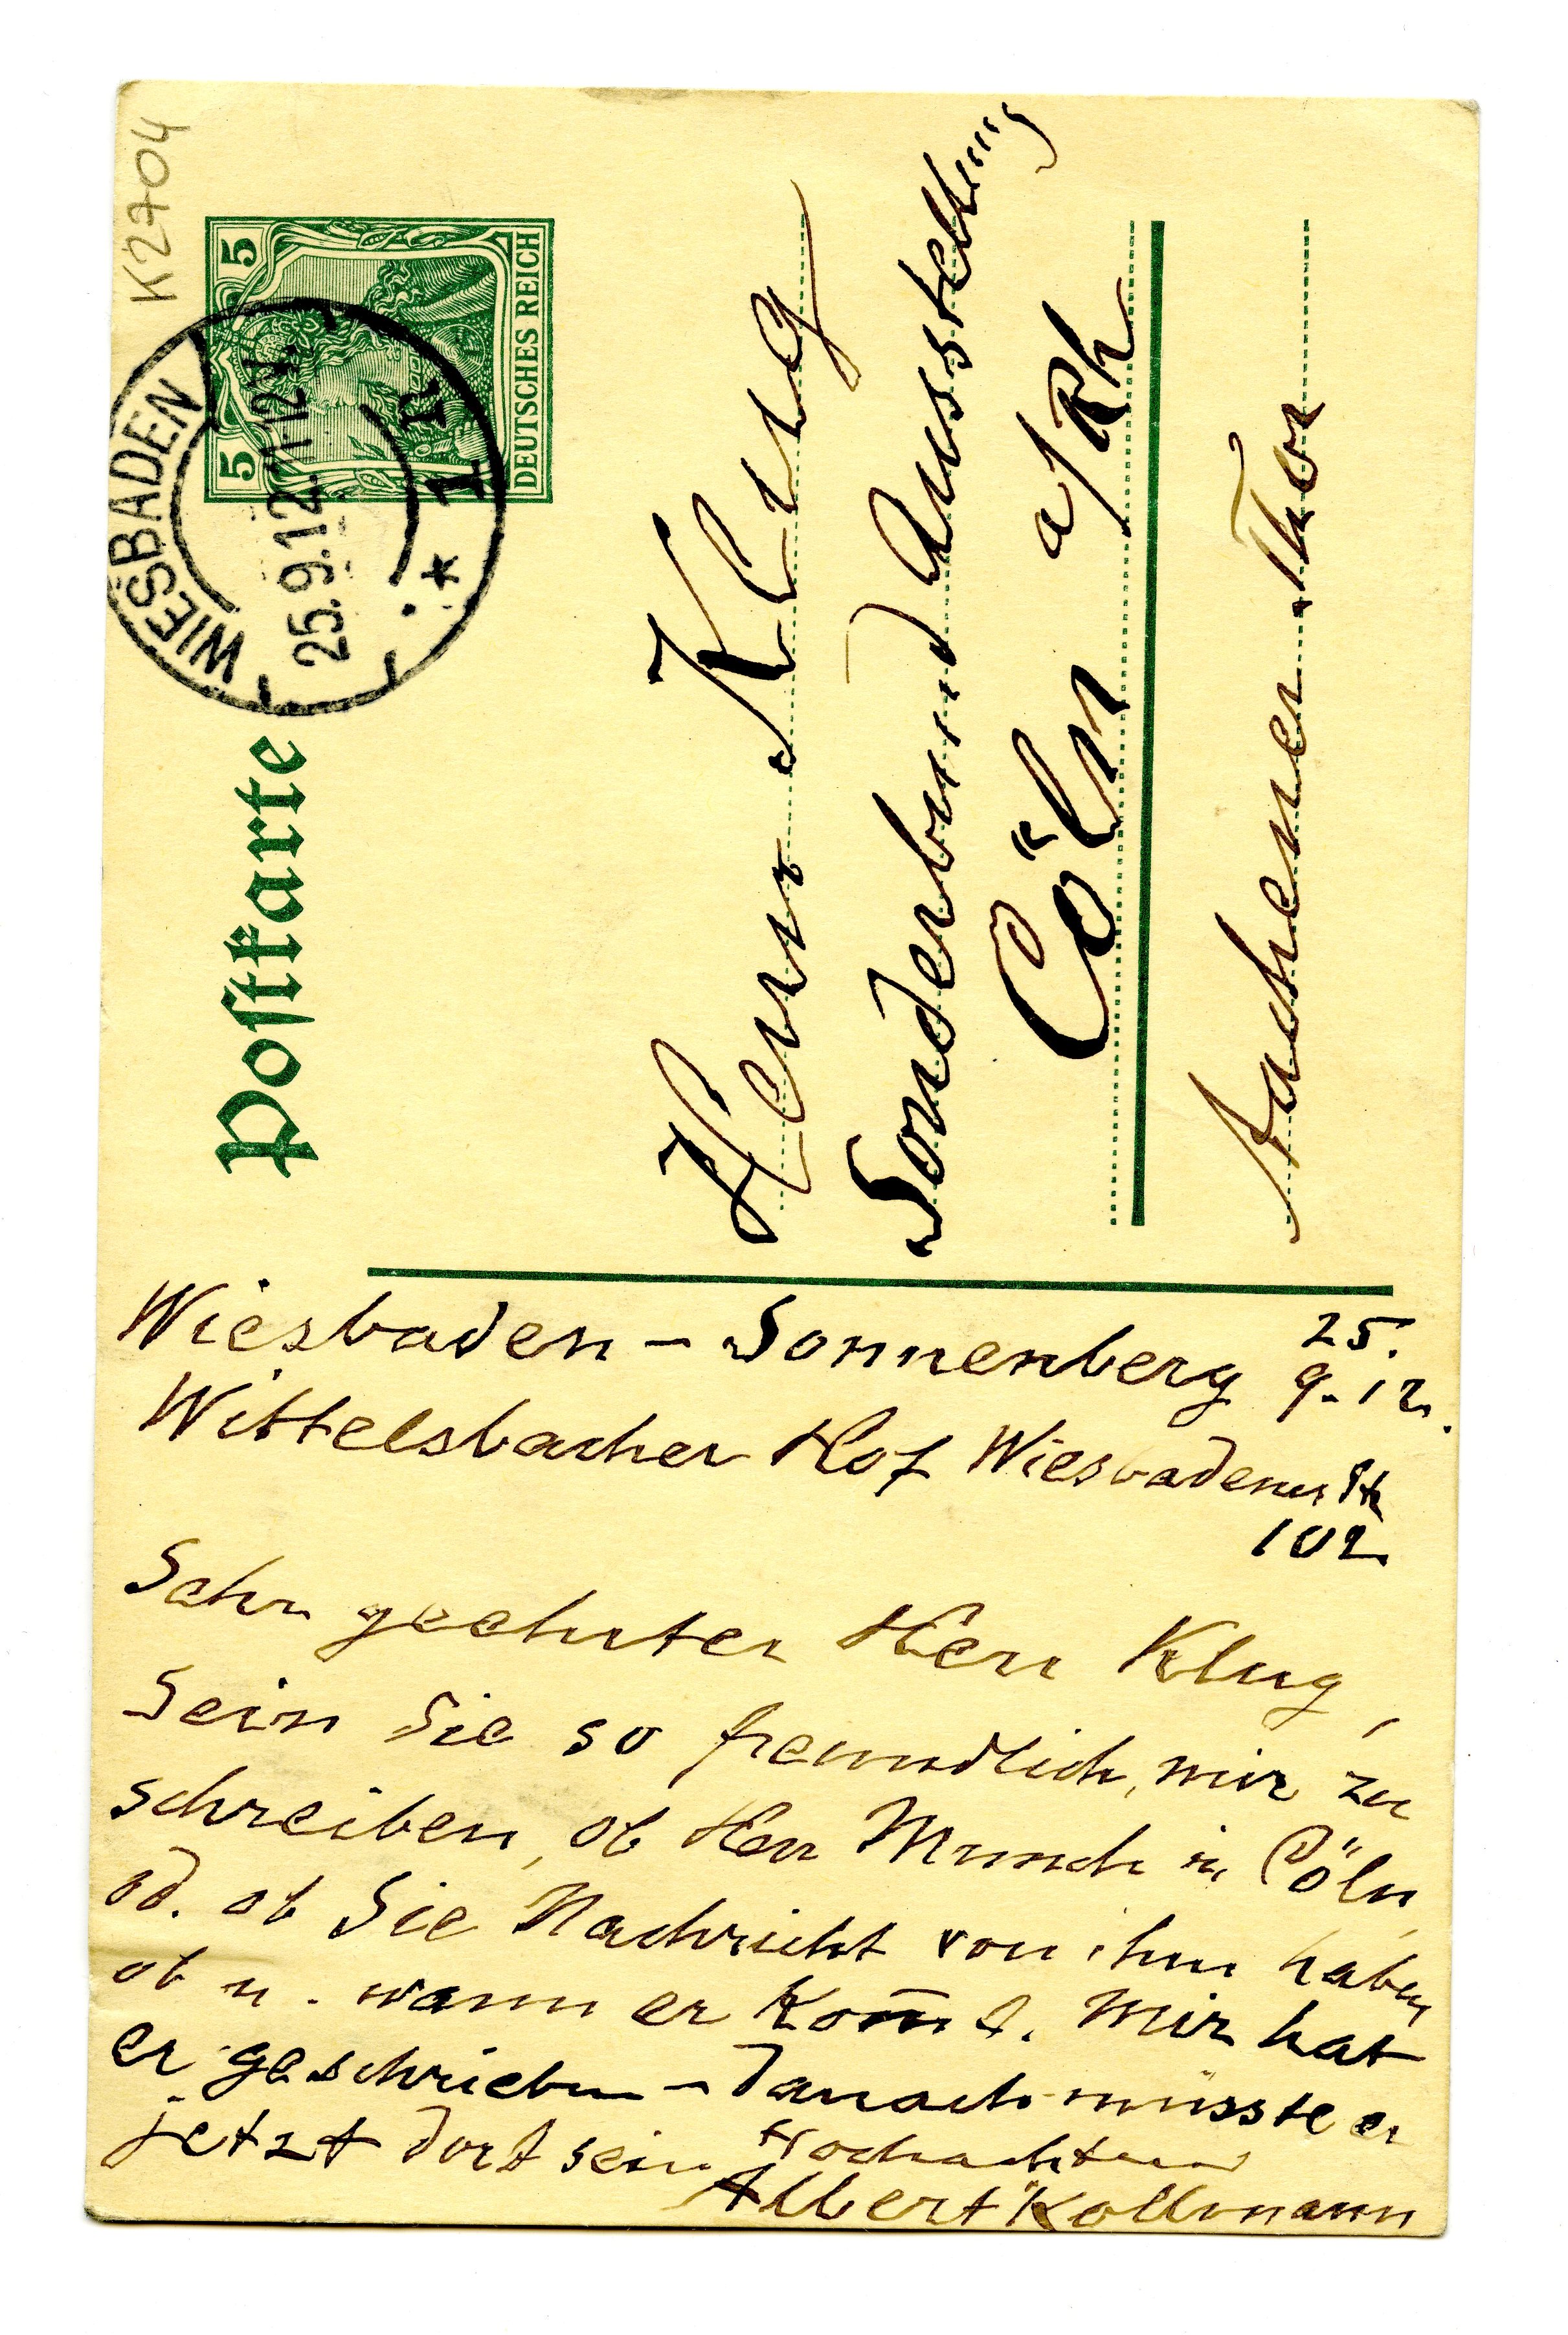 K2704
5 5
DEUTSCHES REICH
WIESBADEN
25.9.12.11-12V.
* 1 n
Postkarte
Herrn Klug
Sonderbund Ausstellung
Cöln a/Rh
Aachener Thor
Wiesbaden - Sonnenberg 25.
9.12.
Wittelsbacher Hof Wiesbadener Str
102
Sehr geehrter Herr Klug,
Sein Sie so freundlich, mir zu
schreiben, ob Herr Munch in Cöln,
od. ob Sie Nachricht von ihm haben,
ob u. wann er kom̅t. Mir hat
er geschrieben - danach müsste er
jetzt dort sein Hochachtend
Albert Kollmann